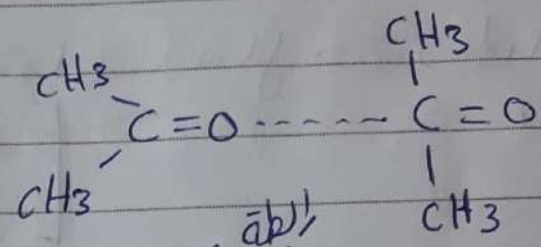 CH3
CH3
C=O ------ C=O
CH3
CH3